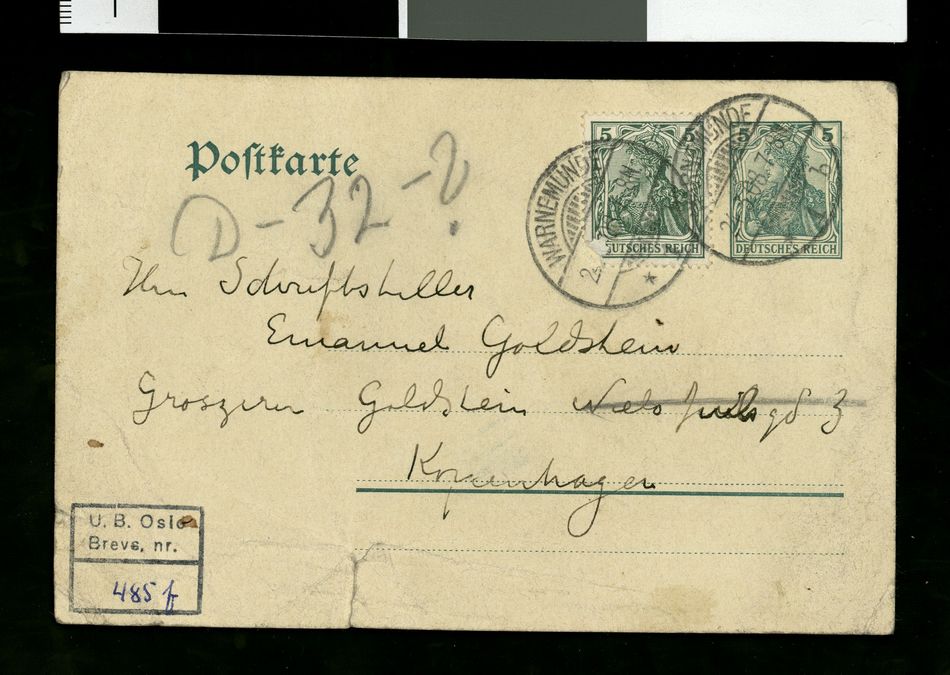 Postkarte
D-32-?
5 5
5 5
DEUTSCHES REICH
DEUTSCHES REICH
WARNEMÜNDE
WARNEMÜNDE
Herrn Schriftsteller
Emanuel Goldstein
Groszerer Goldstein Niels Juels gd 3
Kopenhagen
U. B. Oslo
Brevs. nr.
485 f